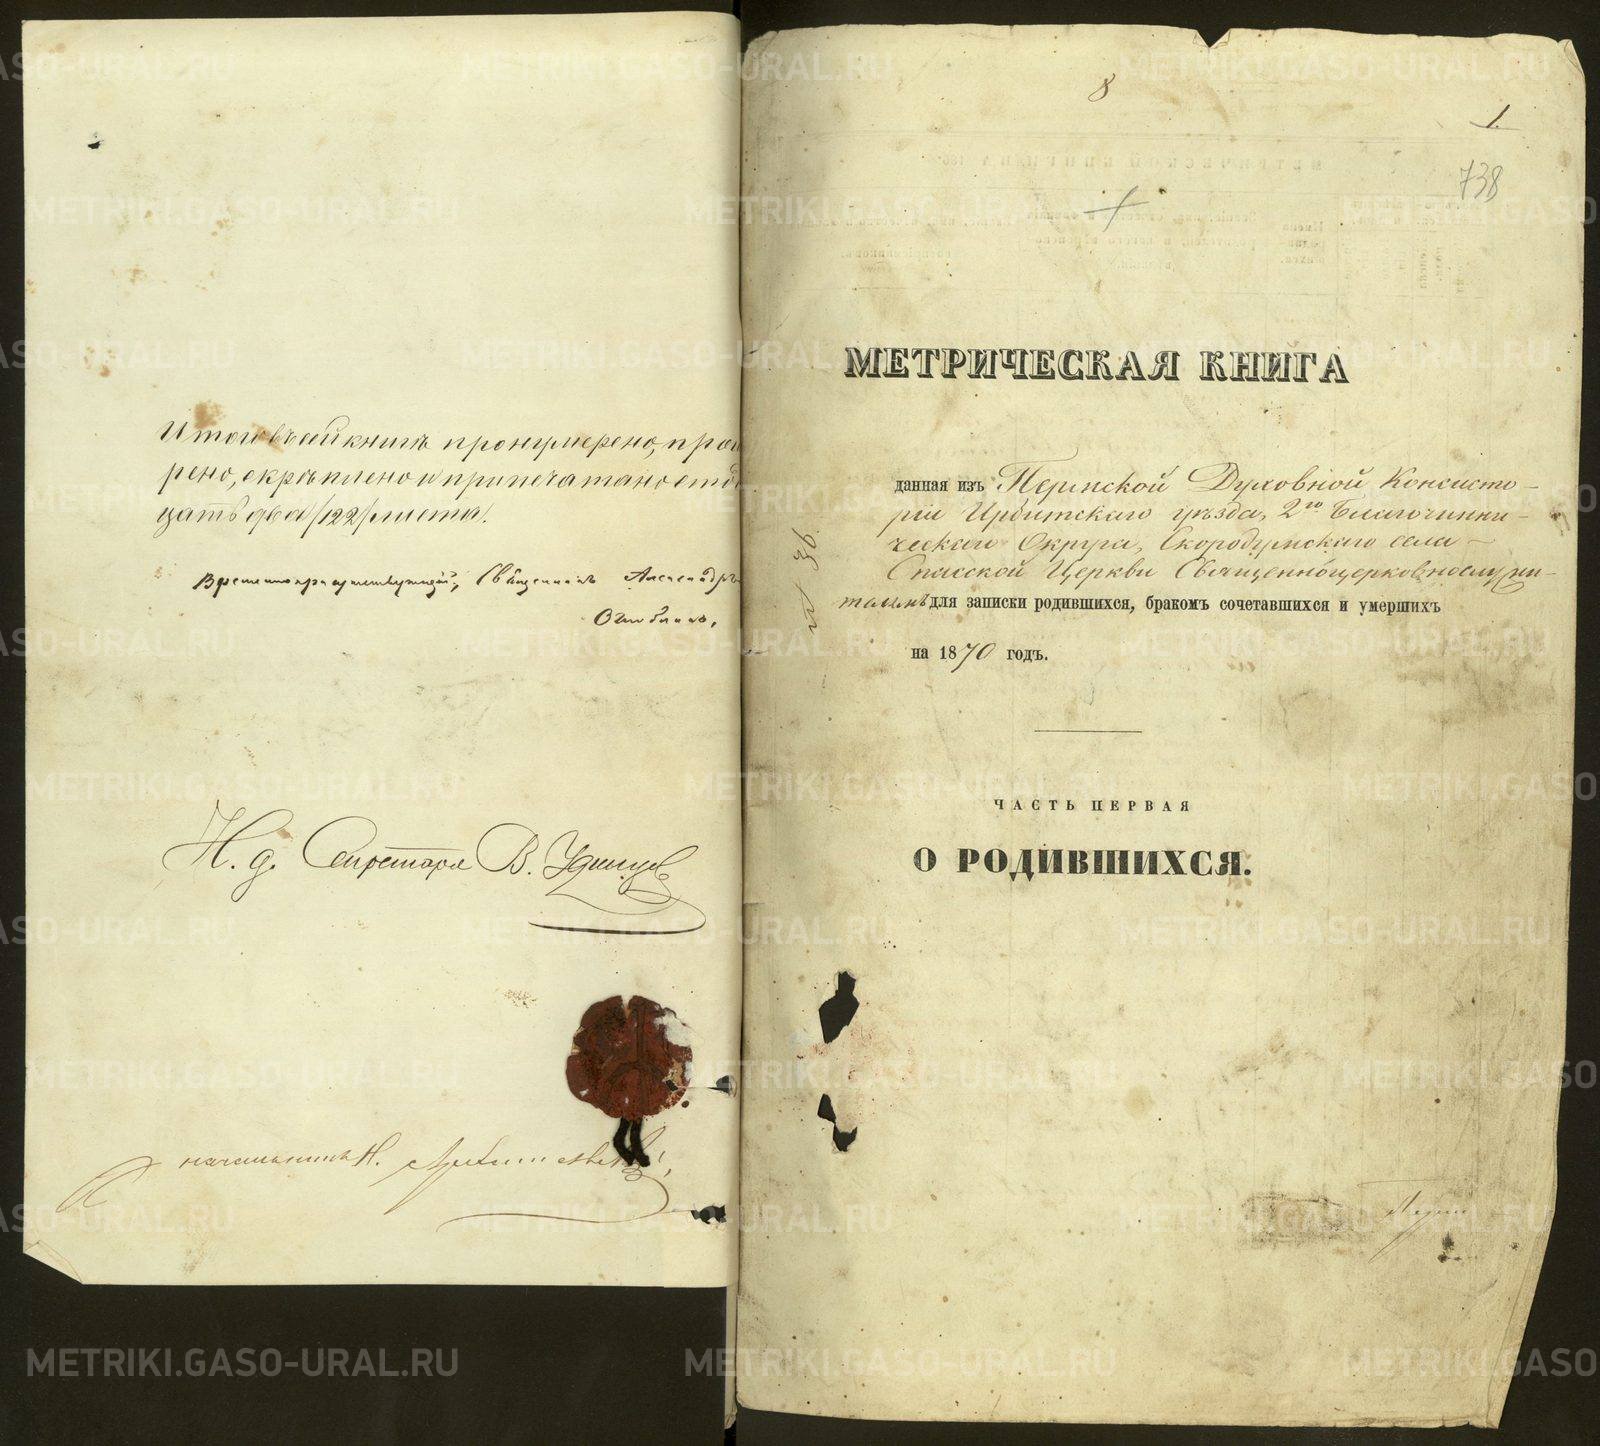 Итого въ сей книгѣ пронумерено, прош
рено, скрѣплено и припечатано сто д
цать два /122/ листа.
Временноприсутствующій, Священникъ Александръ
И. д. Секретаря В. Удинцов
начальникъ Н.
8
1.
738
МЕТРИЧЕСКАЯ КНИГА
данная изъ Пермской Духовной Консисто-
ріи Ирбитскаго уѣзда, 2го Благочинни-
ческаго Округа, Скородумскаго села
Спасской Церкви Священноцерковнослужи-
телямъ для записки родившихся, бракомъ сочетавшихся и умершихъ
на 1870 годъ.
ЧАСТЬ ПЕРВАЯ
О РОДИВШИХСЯ.
METRIKI.GASO-URAL.RU